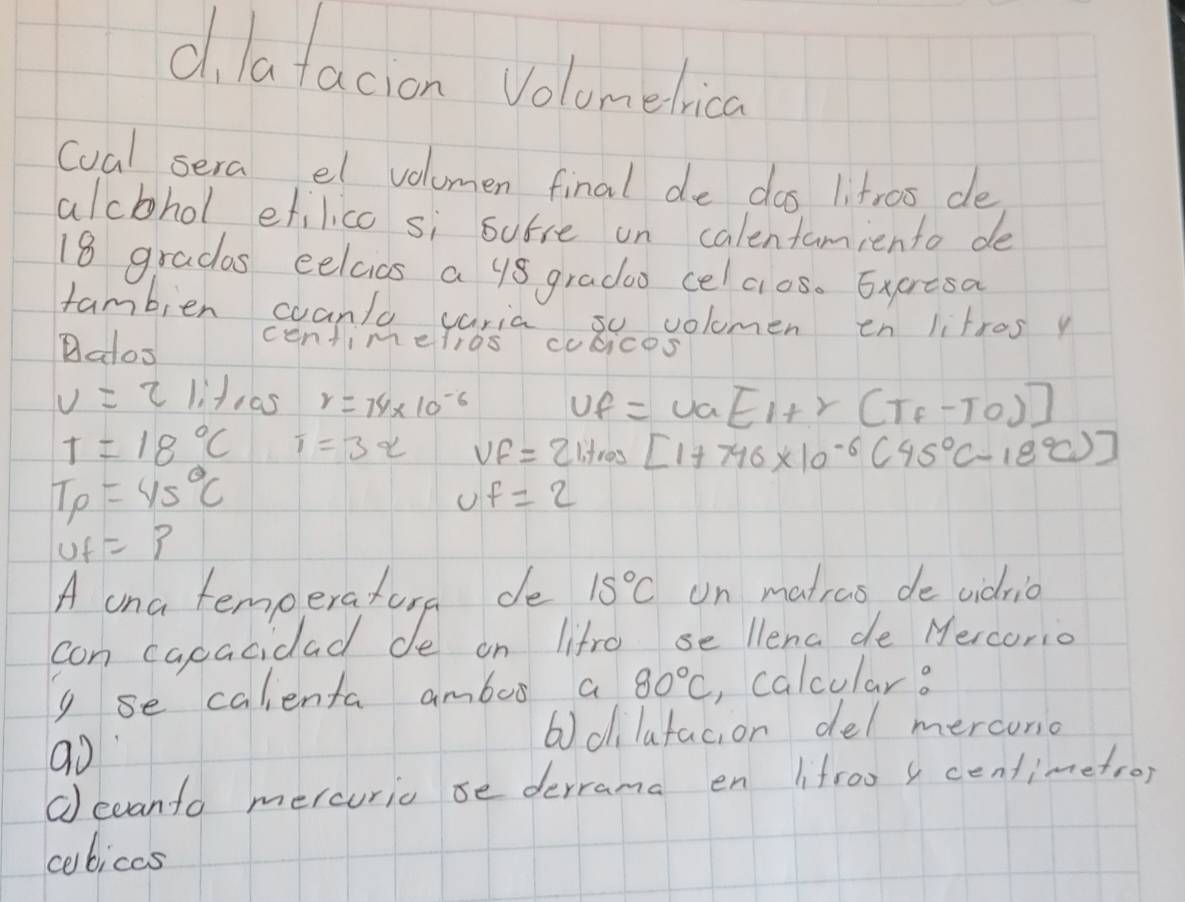 dilatacion Volumetrica
Cual sera el volumen final de dos litros de
alcohol etilico si sufre un calentamiento de
18 grados celcios a 45 grados celcios. Expresa
tambien cuanto varia su volumen en litros y
centimetros cubicos
Datos
V = 2 litros r = 74x10⁻⁶ Vf = Va [1+r (Tf - T0)]
T = 18 °C Vf = 2 litros [1+746x10⁻⁶ (45°C - 18°C)]
Tp = 45°C Vf = 2
Vf = ?
A una temperatura de 15°C un matras de vidrio
con capacidad de un litro se llena de Mercurio
y se calienta ambos a 80°C, calcular:
a) b) dilatacion del mercurio
c) cuanto mercurio se derrama en litros y centimetros
cubicos